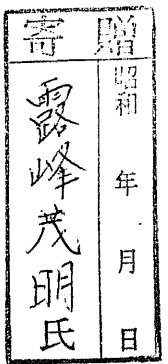 寄贈
昭和　年　月　日
露峰茂明氏